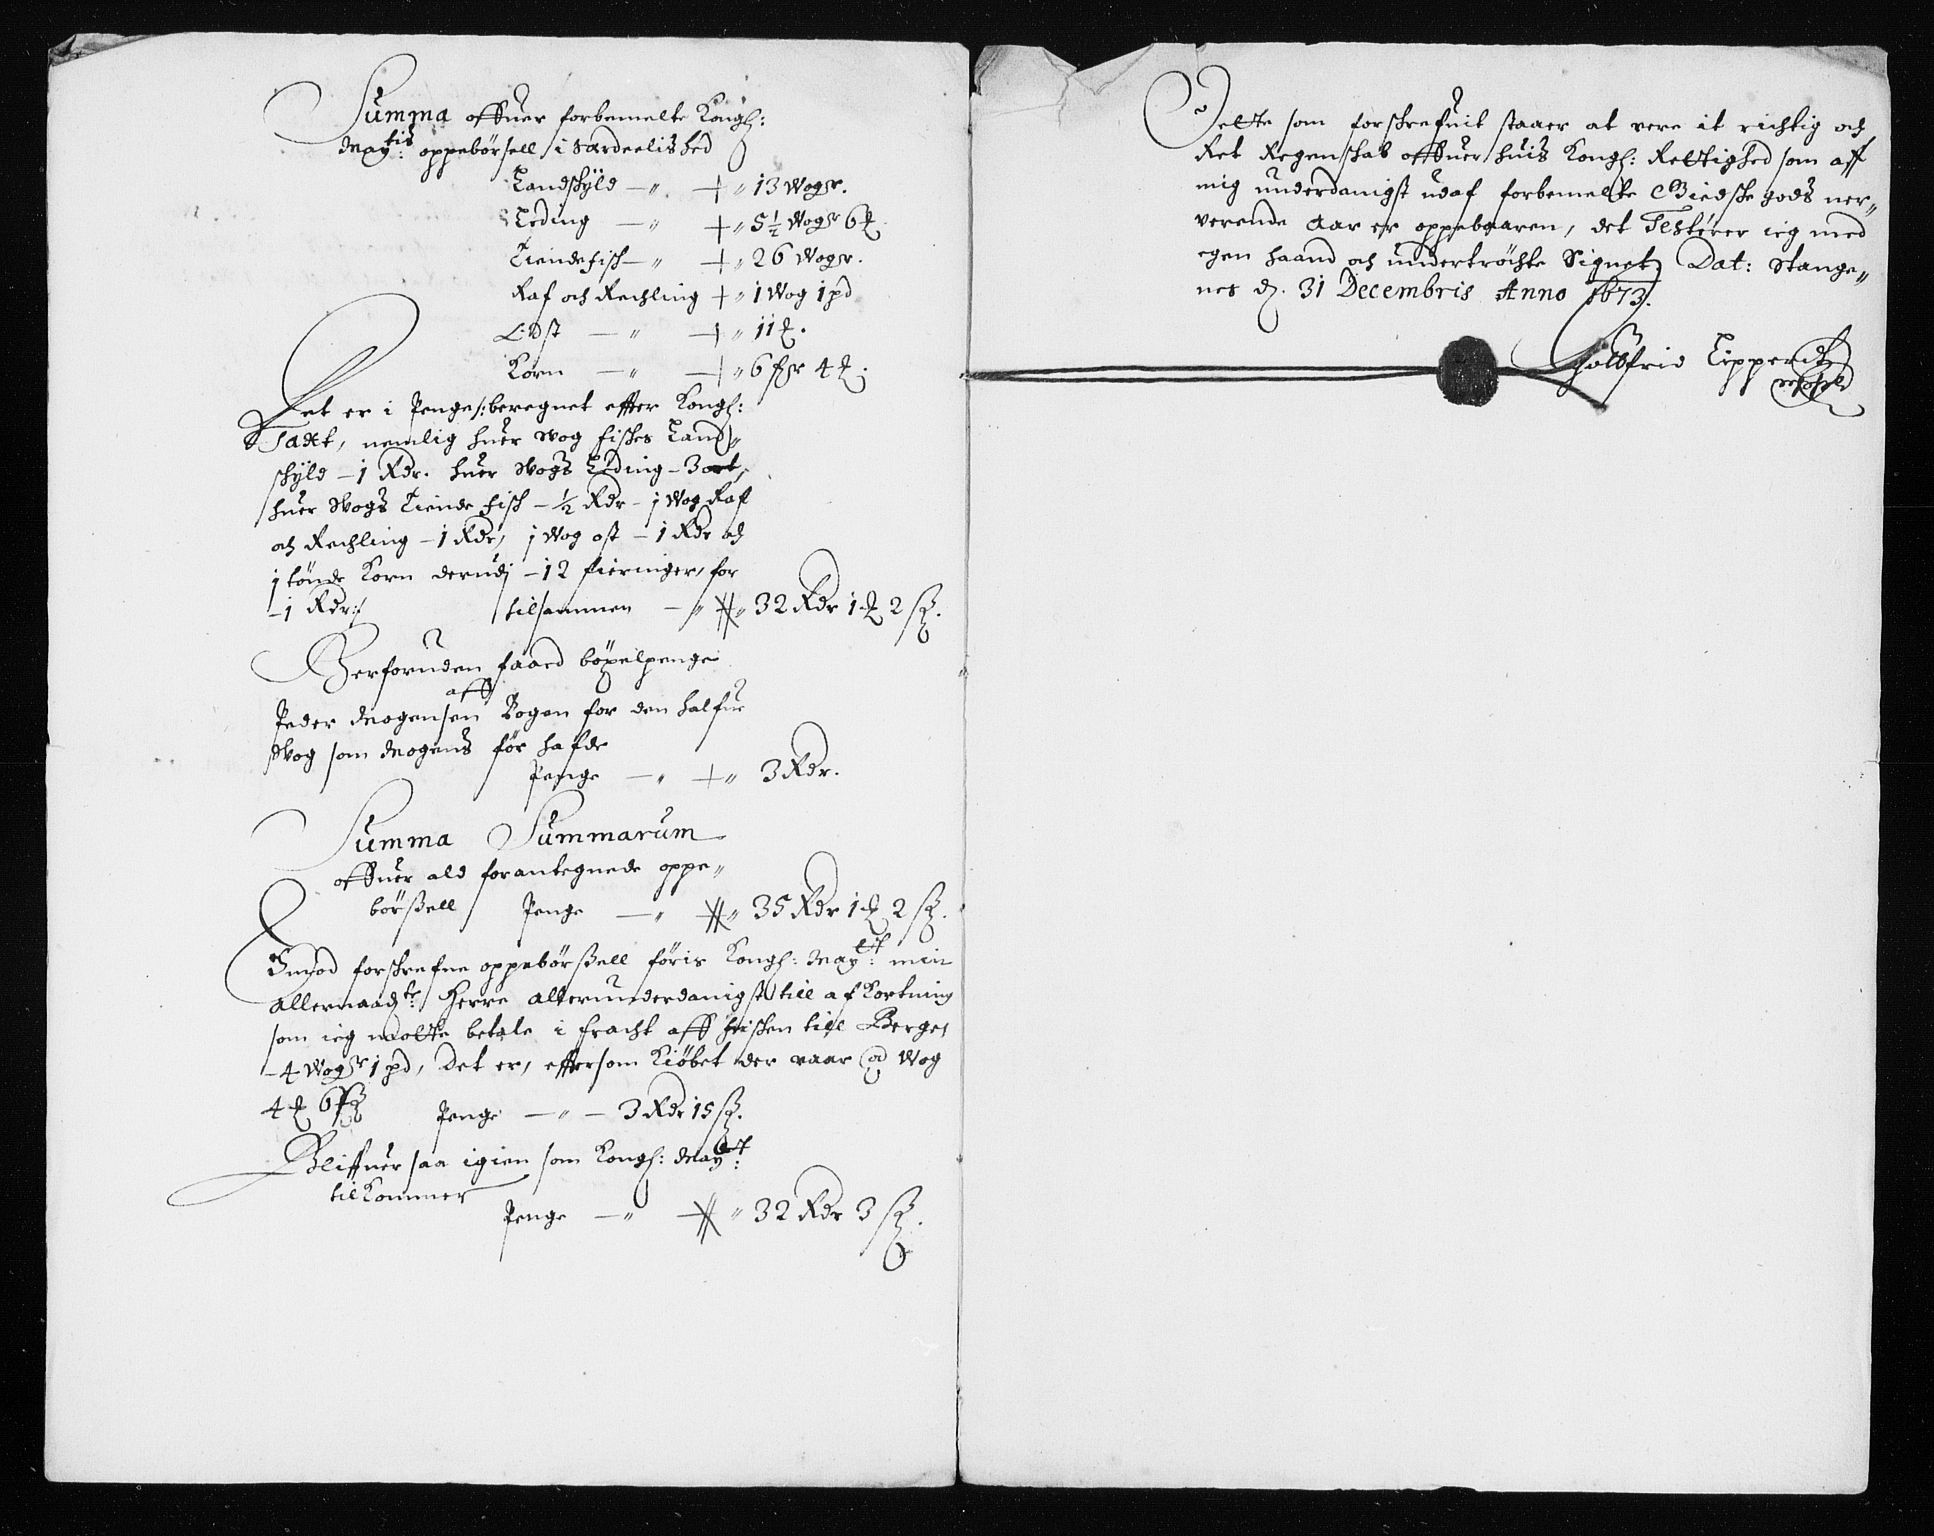 Summa offuer forbemelte Kongl:
May:tis oppebörsell i Særdeelished
Landskyld — " — + " 13 Woger.
Leding — " + " 5½ Woger 6 ℔
Tiendefisk — " — + " 26 Woger.
Raf och Rechling + " 1 Wog 1 pd
Ost — " — + " 11 ℔.
Korn — " — + " 6 fr 4 ℔.
Det er i Penge /: beregnet effter Kongl:
Taxt, nemlig huer wog fiskes Land"
skyld – 1 Rdr. huer Wogs Leding – 3 ort,
huer Wogs Tiende fisk – ½ Rdr – 1 Wog Raf
och Rechling – 1 Rdr, 1 Wog ost – 1 Rdr och
1 tönde Korn derudj – 12 fieringer, for
– 1 Rdr :/ tilsammen — " " 32 Rdr 1 ℔ 2 ß.
Herforuden faaed böxelpenge
aff
Peder Mogensen Bogen for den halfue
Wog som Mogens för hafde
Penge — " + " 3 Rdr.
Summa Summarum
offuer ald forantegnede oppe"
börßell Penge — " " 35 Rdr 1 ℔ 2 ß.
Imod forskrefne oppebörßell föris Kongl: May:tt min
allernaadgte: Herre allerunderdanigst till afkortning
som ieg motte betale i fracht aff fisken till Bergen
– 4 Woger 1 pd, det er, effersom Kiöbet der vaar @ Wog
4 ℔ 6 ß Penge — " — 3 Rdr 15 ß.
Bliffuer saa igien som Kongl: May:tt
tilkommer
Penge — " — " 32 Rdr 3 ß.
Dette som forskrefuit staaer at vere it richtig och
Ret Regenskab offuer huis Kongl: Rettighed som aff
mig underdanigst udaf forbemelte Giedske gods ner"
verende Aar er oppebaaren, det Testerer ieg med
egen haand och undertröchte Signet, Dat: Stange"
nes d. 31 Decembris Anno 1673.
Lippert